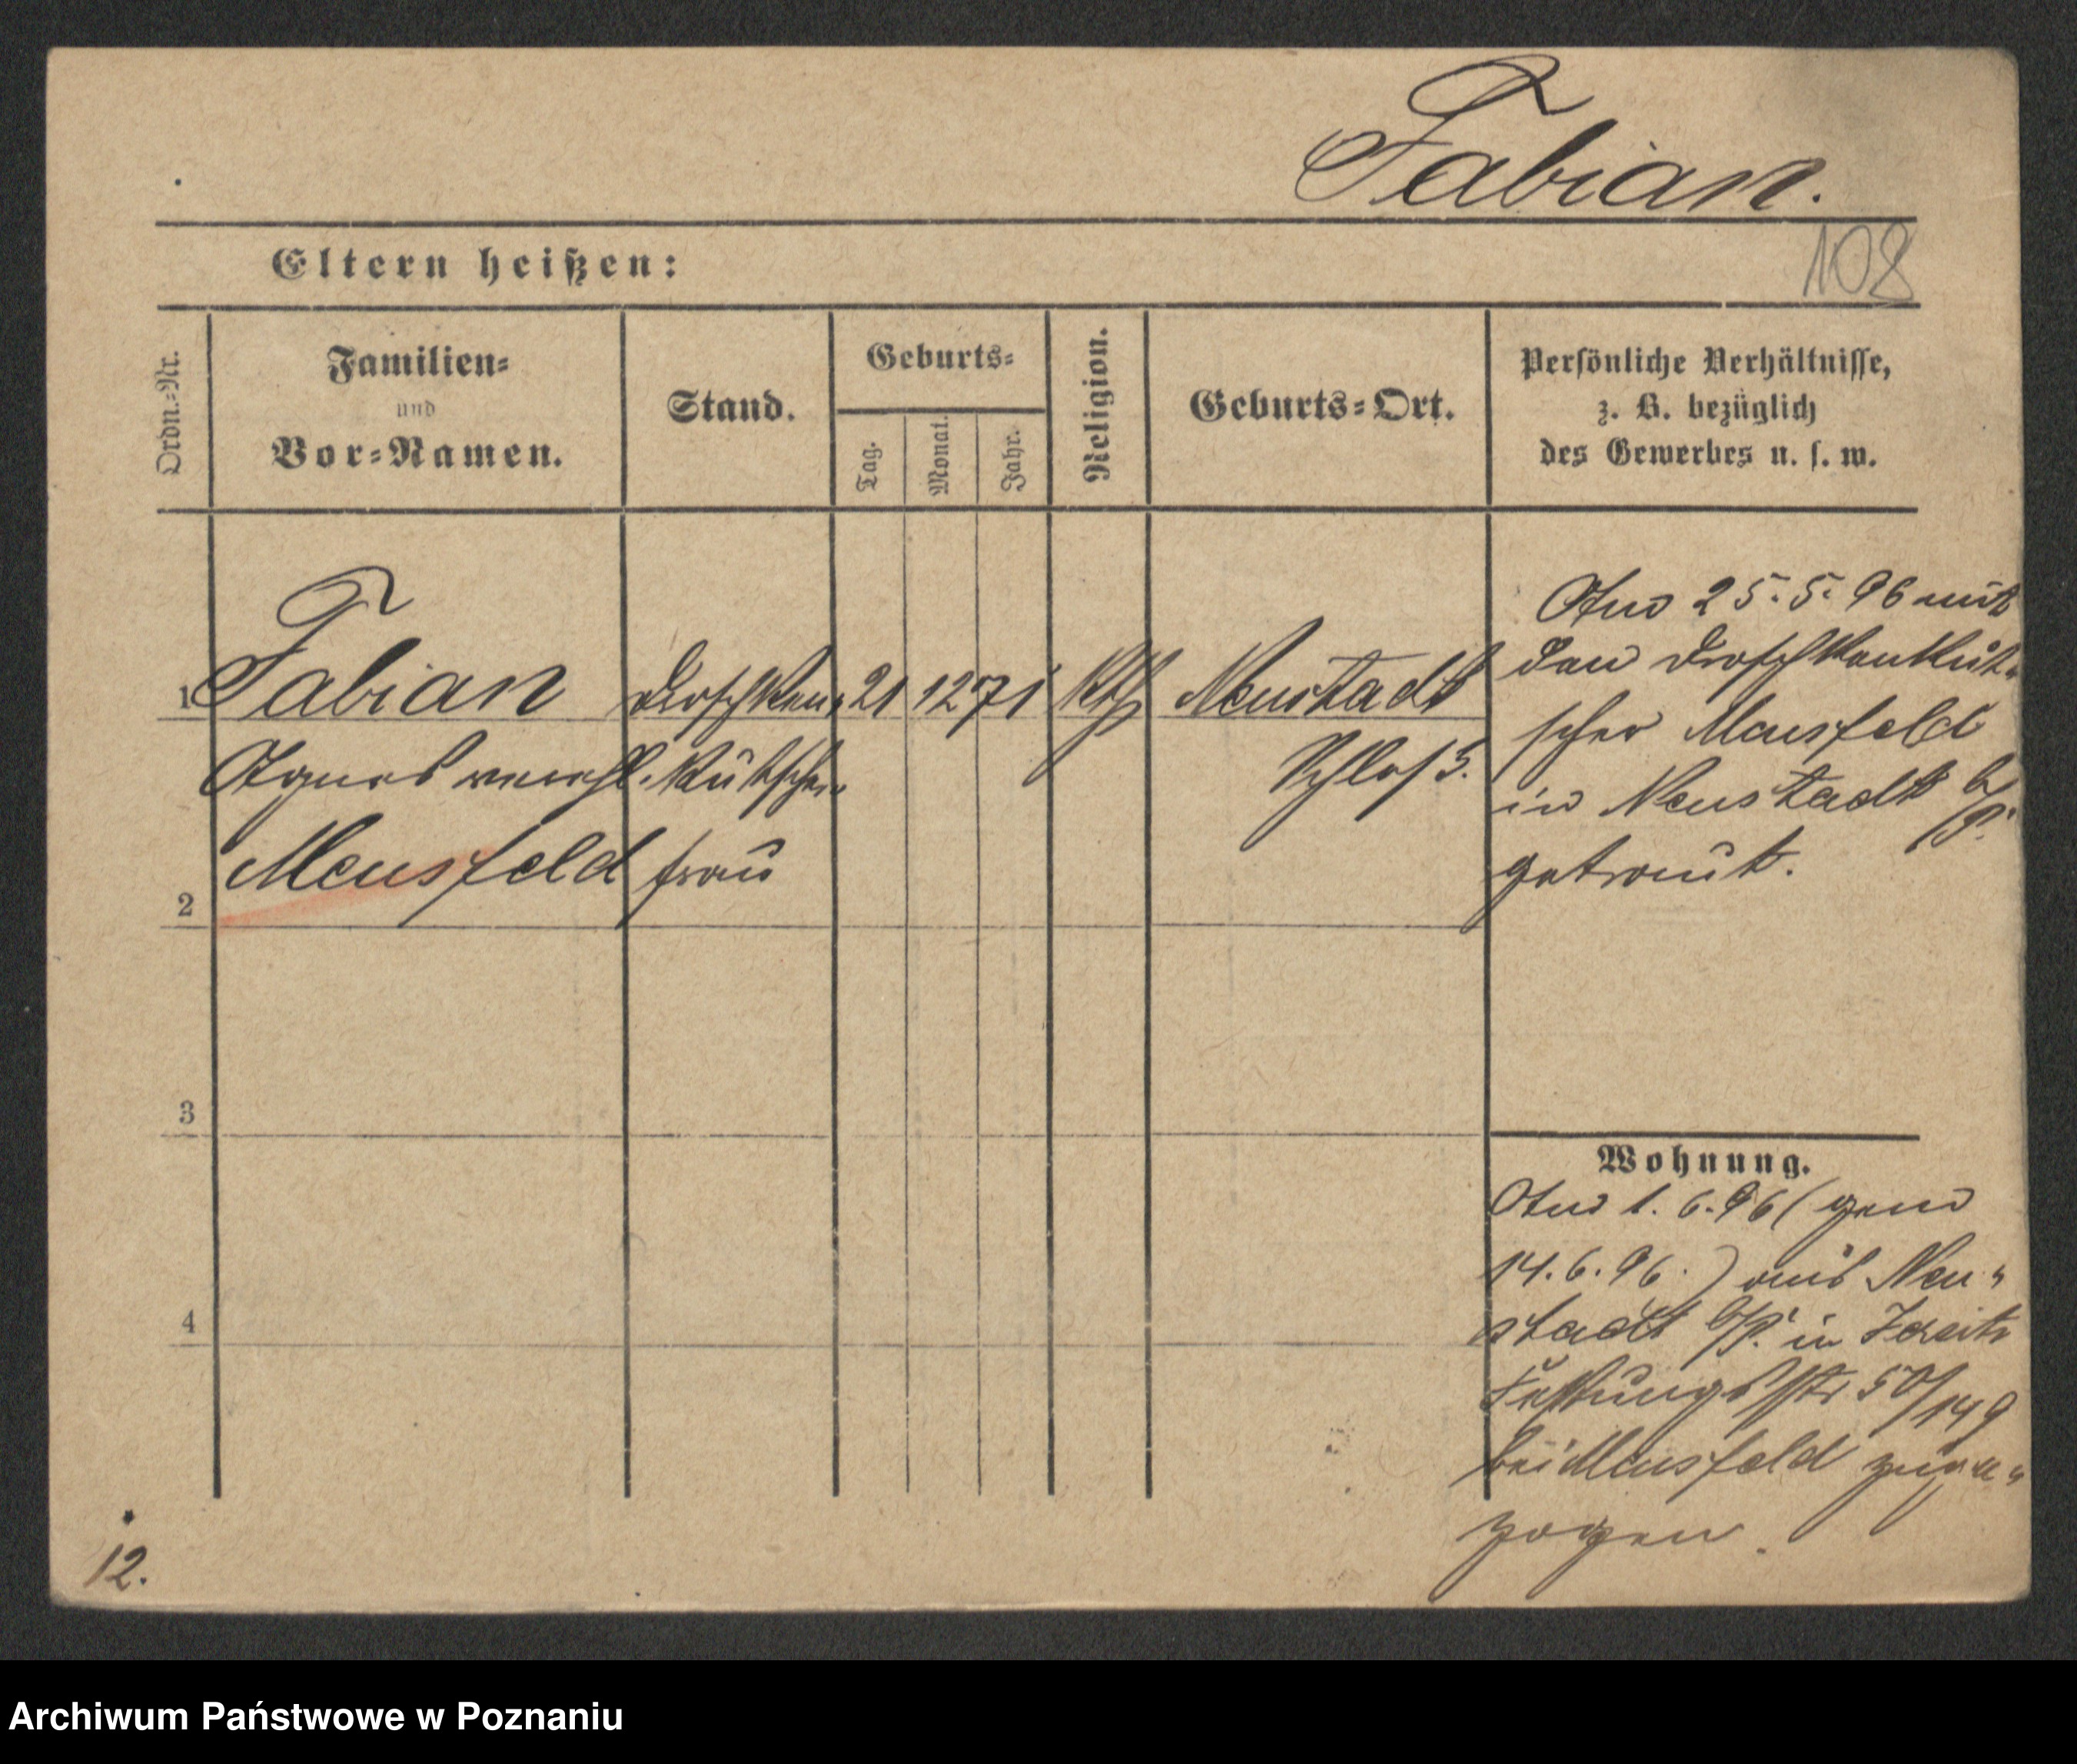 Fabian.
108
Eltern heißen:
Ordn.-Nr.
Familien-
und
Vor-Namen.
Stand.
Geburts-
Tag.
Monat.
Jahr.
Religion.
Geburts-Ort.
Persönliche Verhältnisse,
z. B. bezüglich
des Gewerbes u. s. w.
1 Fabian Droschken- 21 12 71 Kth Neustadt
Agnes verehl. Kutscher- Schloß.
2 Meusfeld frau
3
4
Am 25.5.96 mit
dem Droschkenkut-
scher Meusfeld
in Neustadt b/P.
getraut.
Wohnung.
Am 1.6.96 (gem
14.6.96.) aus Neu-
stadt b/P. in Jersitz
Festungsstr 50/149
bei Meusfeld zuge-
zogen.
12.
Archiwum Państwowe w Poznaniu